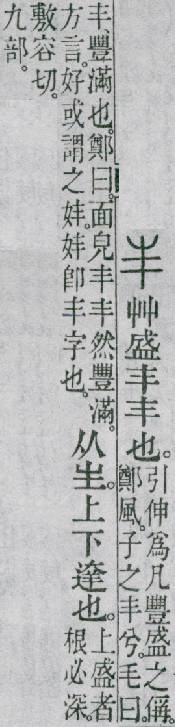 丰 艸盛丰丰也。引伸爲凡豐盛之偁。
鄭風。子之丰兮。毛曰。
丰、豐滿也。鄭曰。面皃丰丰然豐滿。
方言。好或謂之妦。妦卽丰字也。
从生。上下達也。上盛者
根必深。
敷容切。
九部。